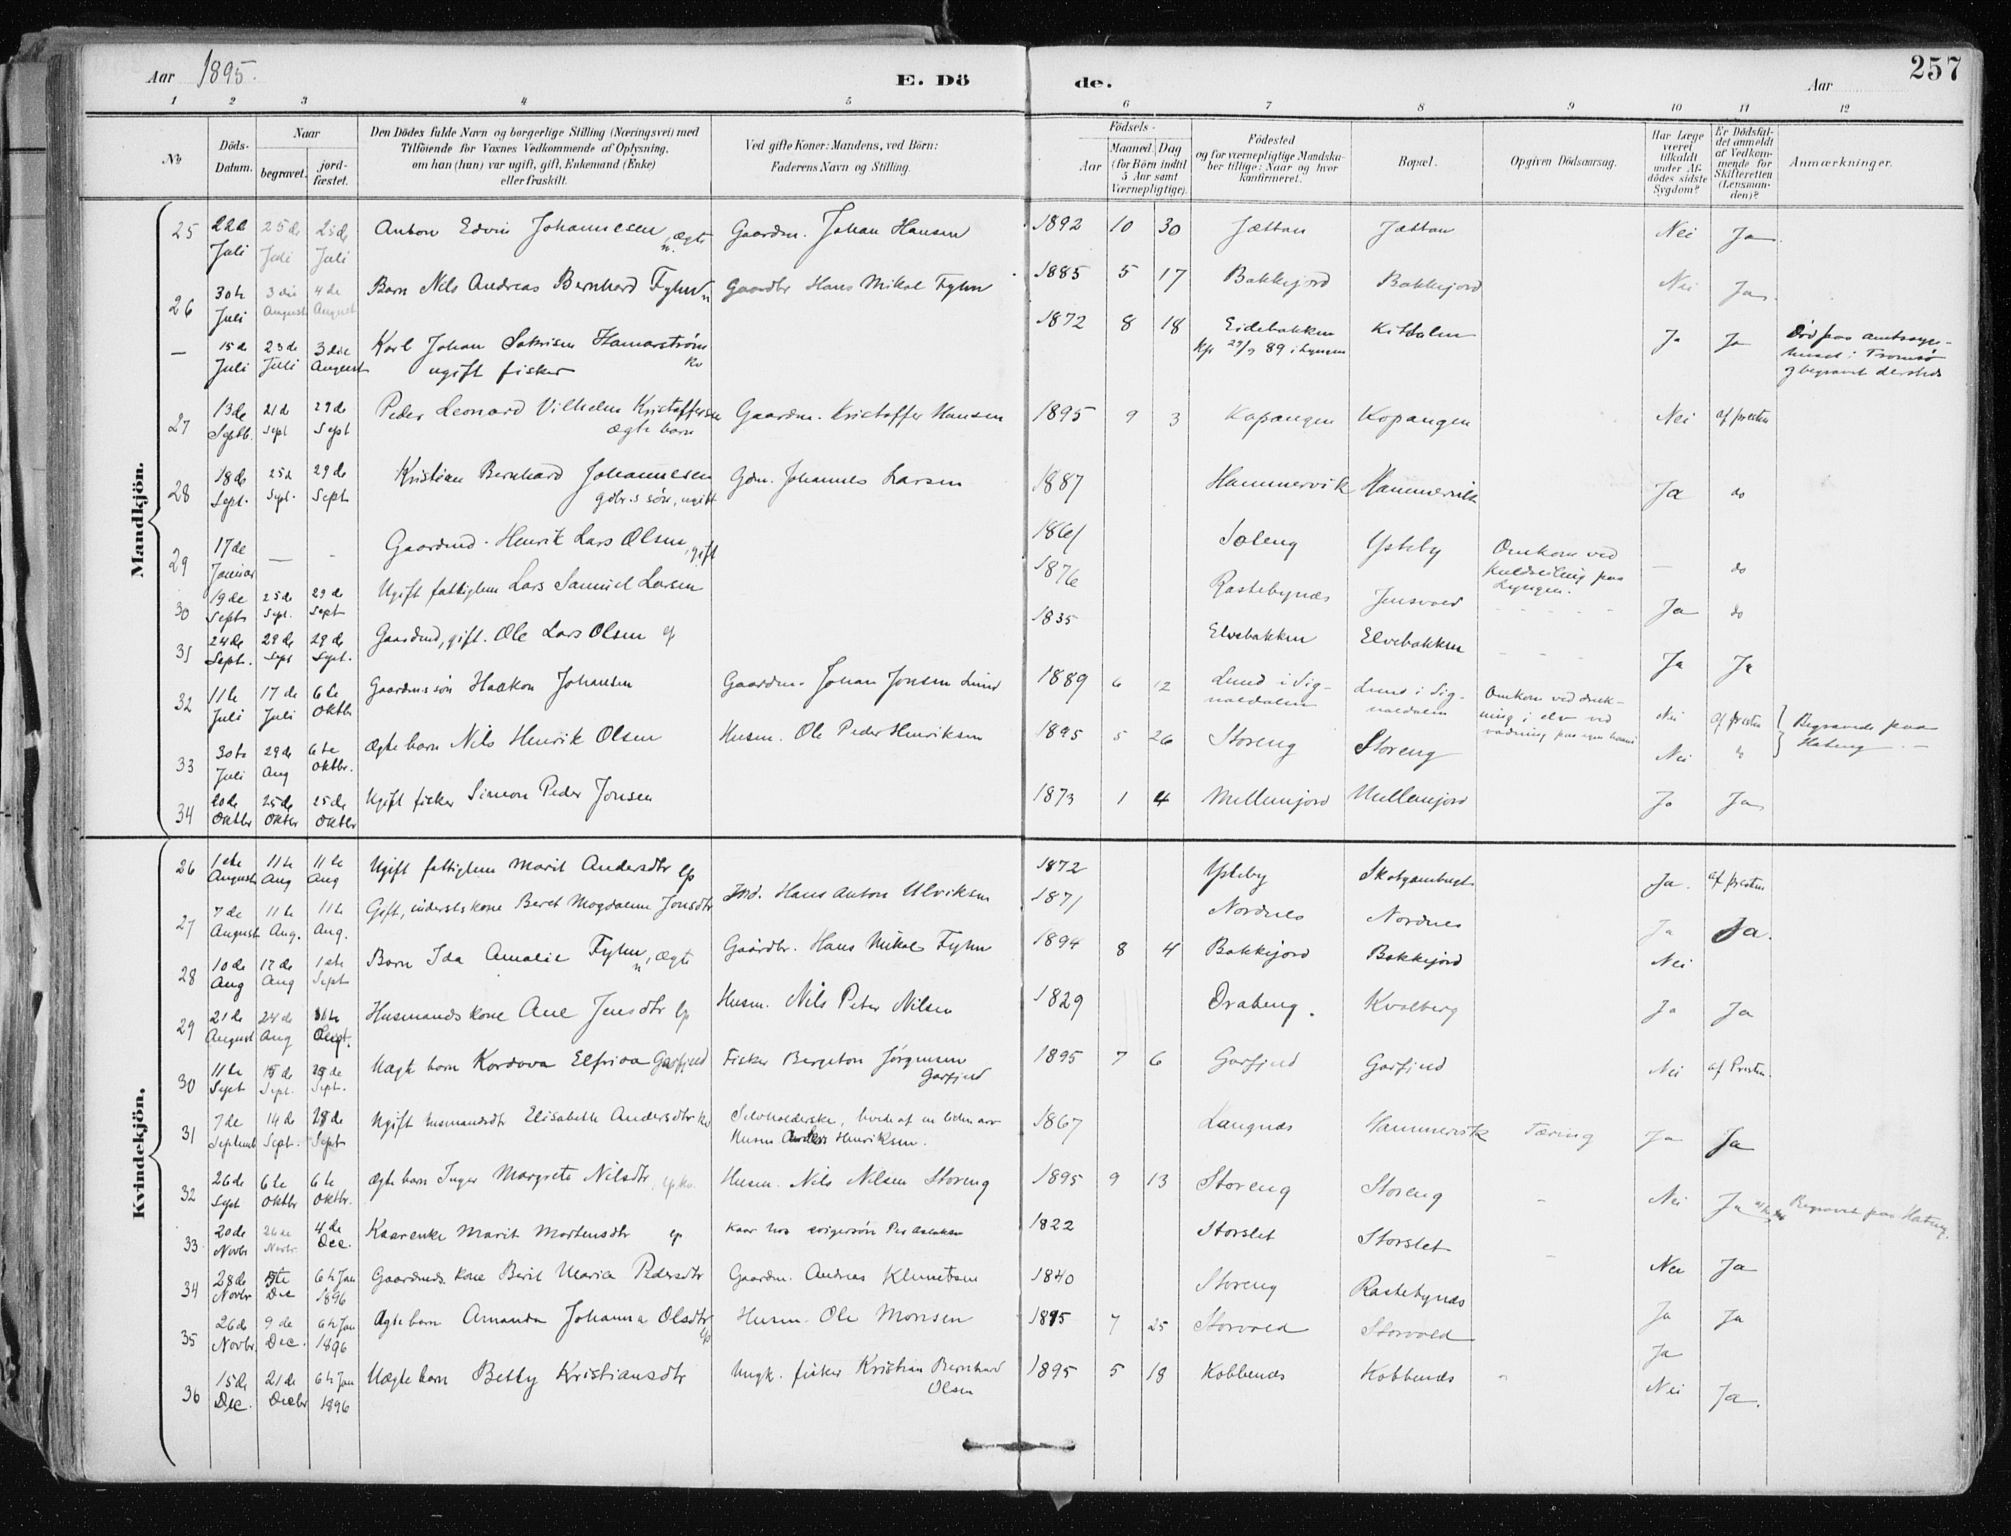 257
Aar 1895.
E. Dö de.
Aar
1 2 3 4 5 6 7 8 9 10 11 12
No
Döds-Datum.
Naar
begravet.
jord-fæstet.
Den Dödes fulde Navn og borgerlige Stilling (Næringsvei) med
Tilföiende for Voxnes Vedkommende af Oplysning,
om han (hun) var ugift, gift, Enkemand (Enke)
eller fraskilt.
Ved gifte Koner: Mandens, ved Börn:
Faderens Navn og Stilling.
Födsels-
Aar
Maaned. Dag
(for Börn indtil
5 Aar samt
Værnepligtige).
Födested
og for værnepligtige Mandska-
ber tillige: Naar og hvor
konfirmeret.
Bopæl.
Opgiven Dödsaarsag.
Har Læge
været
tilkaldt
under Af-
dödes sidste
Sygdom?
Er Dödsfal-
det anmeldt
af Vedkom-
mende for
Skifteretten
(Lensman-
den)?
Anmærkninger.
Mandkjön.
25 22de Juli 25de Juli 25de Juli Anton Edvin Johannesen, ægte Gaardm. Johan Hansen 1892 10 30 Jættan Jættan Nei Ja
26 30te Juli 3die August 4de August Barn Nils Andreas Bernhard Fyhn Gaardbr Hans Mikal Fyhn 1885 5 17 Bakkejord Bakkejord Nei Ja
— 15de Juli 23de Juli 3die August Karl Johan Hamarstrøm
ugift fisker 1872 8 18 Eidebakken
89 i Lyngen Kitdalen Ja Ja Død paa amtssyge-
huset i Tromsø
og begravet dersteds
27 13de Septb. 21de Sept 29de Sept Peder Leonard Vilhelm Kristoffersen
ægte barn Gaardm. Kristoffer Hansen 1895 9 3 Kopangen Kopangen Nei af presten
28 18de Sept. 25de Sept. 29de Sept Kristian Bernhard Johannesen
gdbr.s søn, ugift Gdm. Johannes Larsen 1887 Hammervik Hammervik Ja do
29 17de Januar — - Gaardmd. Henrik Lars Olsen, gift 1861 Soleng Ysteby Omkom ved
kuldseiling paa
Lyngen. — do
30 19de Septb 25de Sept. 29de Sept Ugift fattiglem Lars Samuel Larsen 1876 Rastebynæs Jensvold Ja do
31 24de Sept. 29de Sept 29de Sept. Gaardmd, gift. Ole Lars Olsen 1835 Elvebakken Elvebakken Ja Ja
32 11te Juli 17de Juli 6te Oktbr Gaardmssøn Haakon Johansen Gaardm. Johan Jonsen Lund 1889 6 12 Lund i Sig-
naldalen Lund i Sig-
naldalen Omkom ved druk-
ning i elv ved
vadning Nei af presten Begravede paa
Hateng
33 30te Juli 29de Aug 6te Oktbr. Ægte barn Nils Henrik Olsen Husm. Ole Peder Henriksen 1895 5 26 Storeng Storeng Nei do
34 20de Oktbr 25de Oktbr 25de Oktbr Ugift fisker Simon Peder Jonsen 1873 1 4 Mellemjord Mellemjord Ja Ja
Kvindekjön.
26 1ste August 11te Aug 11te Aug Ugift fattiglem Marit Andersdtr lp 1872 Ysteby af presten Ja.
27 7de August 11te Aug. 11te Aug. Gift, inderstskone Beret Magdalene Jonsdtr Ind. Hans Anton Ulriksen 1871 Nordnes Nordnes Ja Ja.
28 10de Aug 17de Aug 1ste Sept Barn Ida Amalie Fyhn, ægte Gaardbr. Hans Mikal Fyhn 1894 8 4 Bakkejord Bakkejord Nei
29 21de August 24de Aug Husmandskone Ane Jensdtr lp Husm. Nils Peter Nilsen 1829 Drabeng. Kvalberg Ja Ja
30 11te Sept Sept. Sept. Uægte barn Kordova Elfrida Garfjeld Fisker Bergeton Jørgensen
Garfjeld 1895 7 6 Garfjeld Garfjeld Nei af Presten.
31 7de Septemb 14de Sept. Sept Ugift husmandsdtr Elisabeth Andersdtr Selvholderske,
Husm Anders Henriksen. 1867 Langnæs Hammervik Tæring Ja Ja
32 26de Sept 6te Oktbr 6te Oktbr. Ægte barn Inger Margrete Nilsdtr Husm. Nils Nilsen Storeng 1895 9 13 Storeng Storeng Nei Ja Begravet paa Hateng.
33 20de Novbr 26de Novbr. 4de Dec. Kaarenke Marit Mortensdtr lp Kaar hos svigersøn Per Aslaksen 1822 Storslet Storslet Nei Ja
34 28de Novbr Dec 6te Jan 1896 Gaardmds. kone Berit Maria Pedersdtr Gaardm. Andreas Klemetsen 1840 Storeng Rastebynæs Ja Ja
35 26de Novbr. 9de Dec. 6te Jan 1896 Ægte barn Amanda Johanna Olsdtr lp Husm. Ole Monsen 1895 7 25 Storvold Storvold Ja
36 15de Dec. 21de Decbr 6te Jan 1896 Uægte barn Betty Kristiansdtr Ungk. fisker Kristian Bernhard
Olsen 1895 5 18 Kobbenæs Kobbenæs Nei Ja.